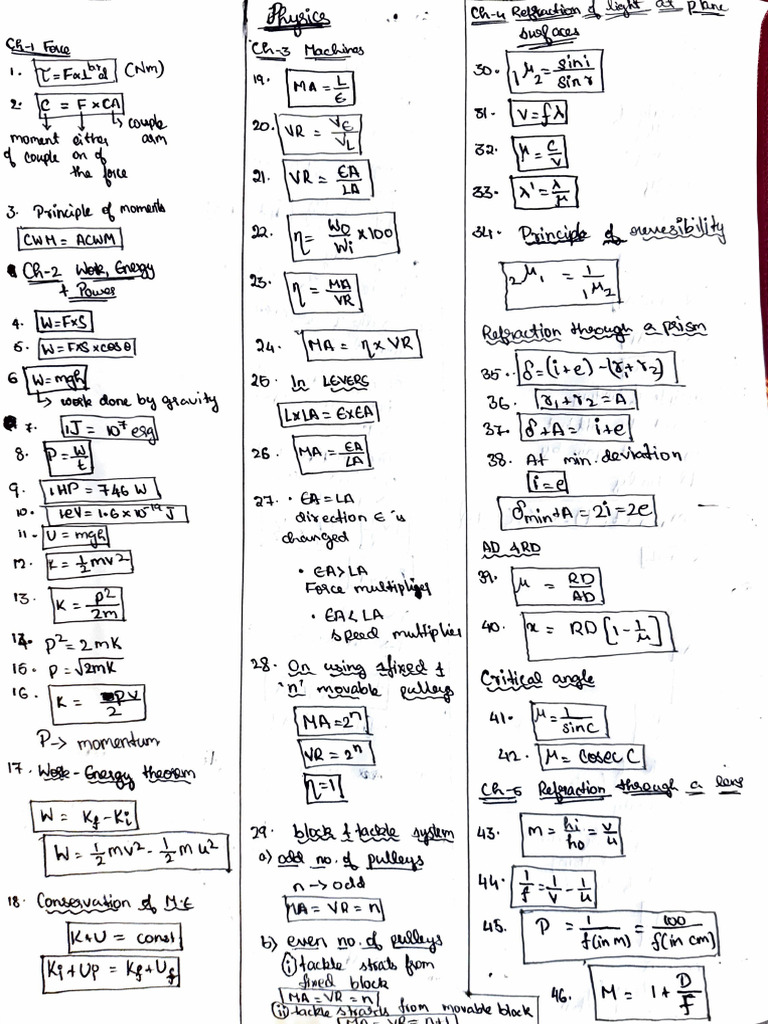 Physics
Ch-1 Force
1. τ = F × ⊥ʳ d (Nm)
2. C = F × CA
couple
moment either arm
of couple on of
the force
3. Principle of moments
CWM = ACWM
Ch-2 Work, Energy
+ Power
4. W = F×S
5. W = F×S × cosθ
6 W = mgh
↳ work done by gravity
7. 1J = 10⁷ erg
8. P = W/t
9. 1HP = 746 W
10. 1eV = 1.6 × 10⁻¹⁹ J
11. U = mgh
12. K = 1/2 mv²
13. K = P²/2m
14. P² = 2mK
15. P = √2mK
16. K = PV/2
P → momentum
17. Work-Energy theorem
W = Kf - Ki
W = 1/2 mv² - 1/2 mu²
18. Conservation of M.E
K+U = const
Ki + Up = Kf + Uf
Ch-3 Machines
19. MA = L/E
20. VR = VE/VL
21. VR = EA/LA
22. η = Wo/Wi × 100
23. η = MA/VR
24. MA = η × VR
25. In LEVERS
L×LA = E×EA
26. MA = EA/LA
27. • EA = LA
direction E is
changed
• EA > LA
Force multiplier
• EA < LA
speed multiplier
28. On using 1 fixed &
'n' movable pulleys
MA = 2ⁿ
VR = 2ⁿ
η = 1
29. block & tackle system
a) odd no. of pulleys
n → odd
MA = VR = n
b) even no. of pulleys
(i) tackle strats from
fixed block
MA = VR = n
(ii) tackle strats from movable block
MA = VR = n+1
Ch-4 Refraction of light at plane
surfaces
30. ₁μ₂ = sin i/sin r
31. v = fλ
32. μ = c/v
33. λ' = λ/μ
34. Principle of reversibility
₂μ₁ = 1/₁μ₂
Refraction through a prism
35. δ = (i+e) - (r₁+r₂)
36. r₁+r₂ = A
37. δ+A = i+e
38. At min. deviation
i = e
δmin+A = 2i = 2e
AD & RD
39. μ = RD/AD
40. x = RD [1 - 1/μ]
Critical angle
41. μ = 1/sinC
42. μ = cosec C
Ch-5 Refraction through a lens
43. m = hi/ho = v/u
44. 1/f = 1/v - 1/u
45. P = 1/f(in m) = 100/f(in cm)
46. M = 1 + D/f